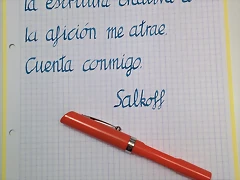 la escritura creativa o
la afición me atrae.
Cuenta conmigo.
Salkoff